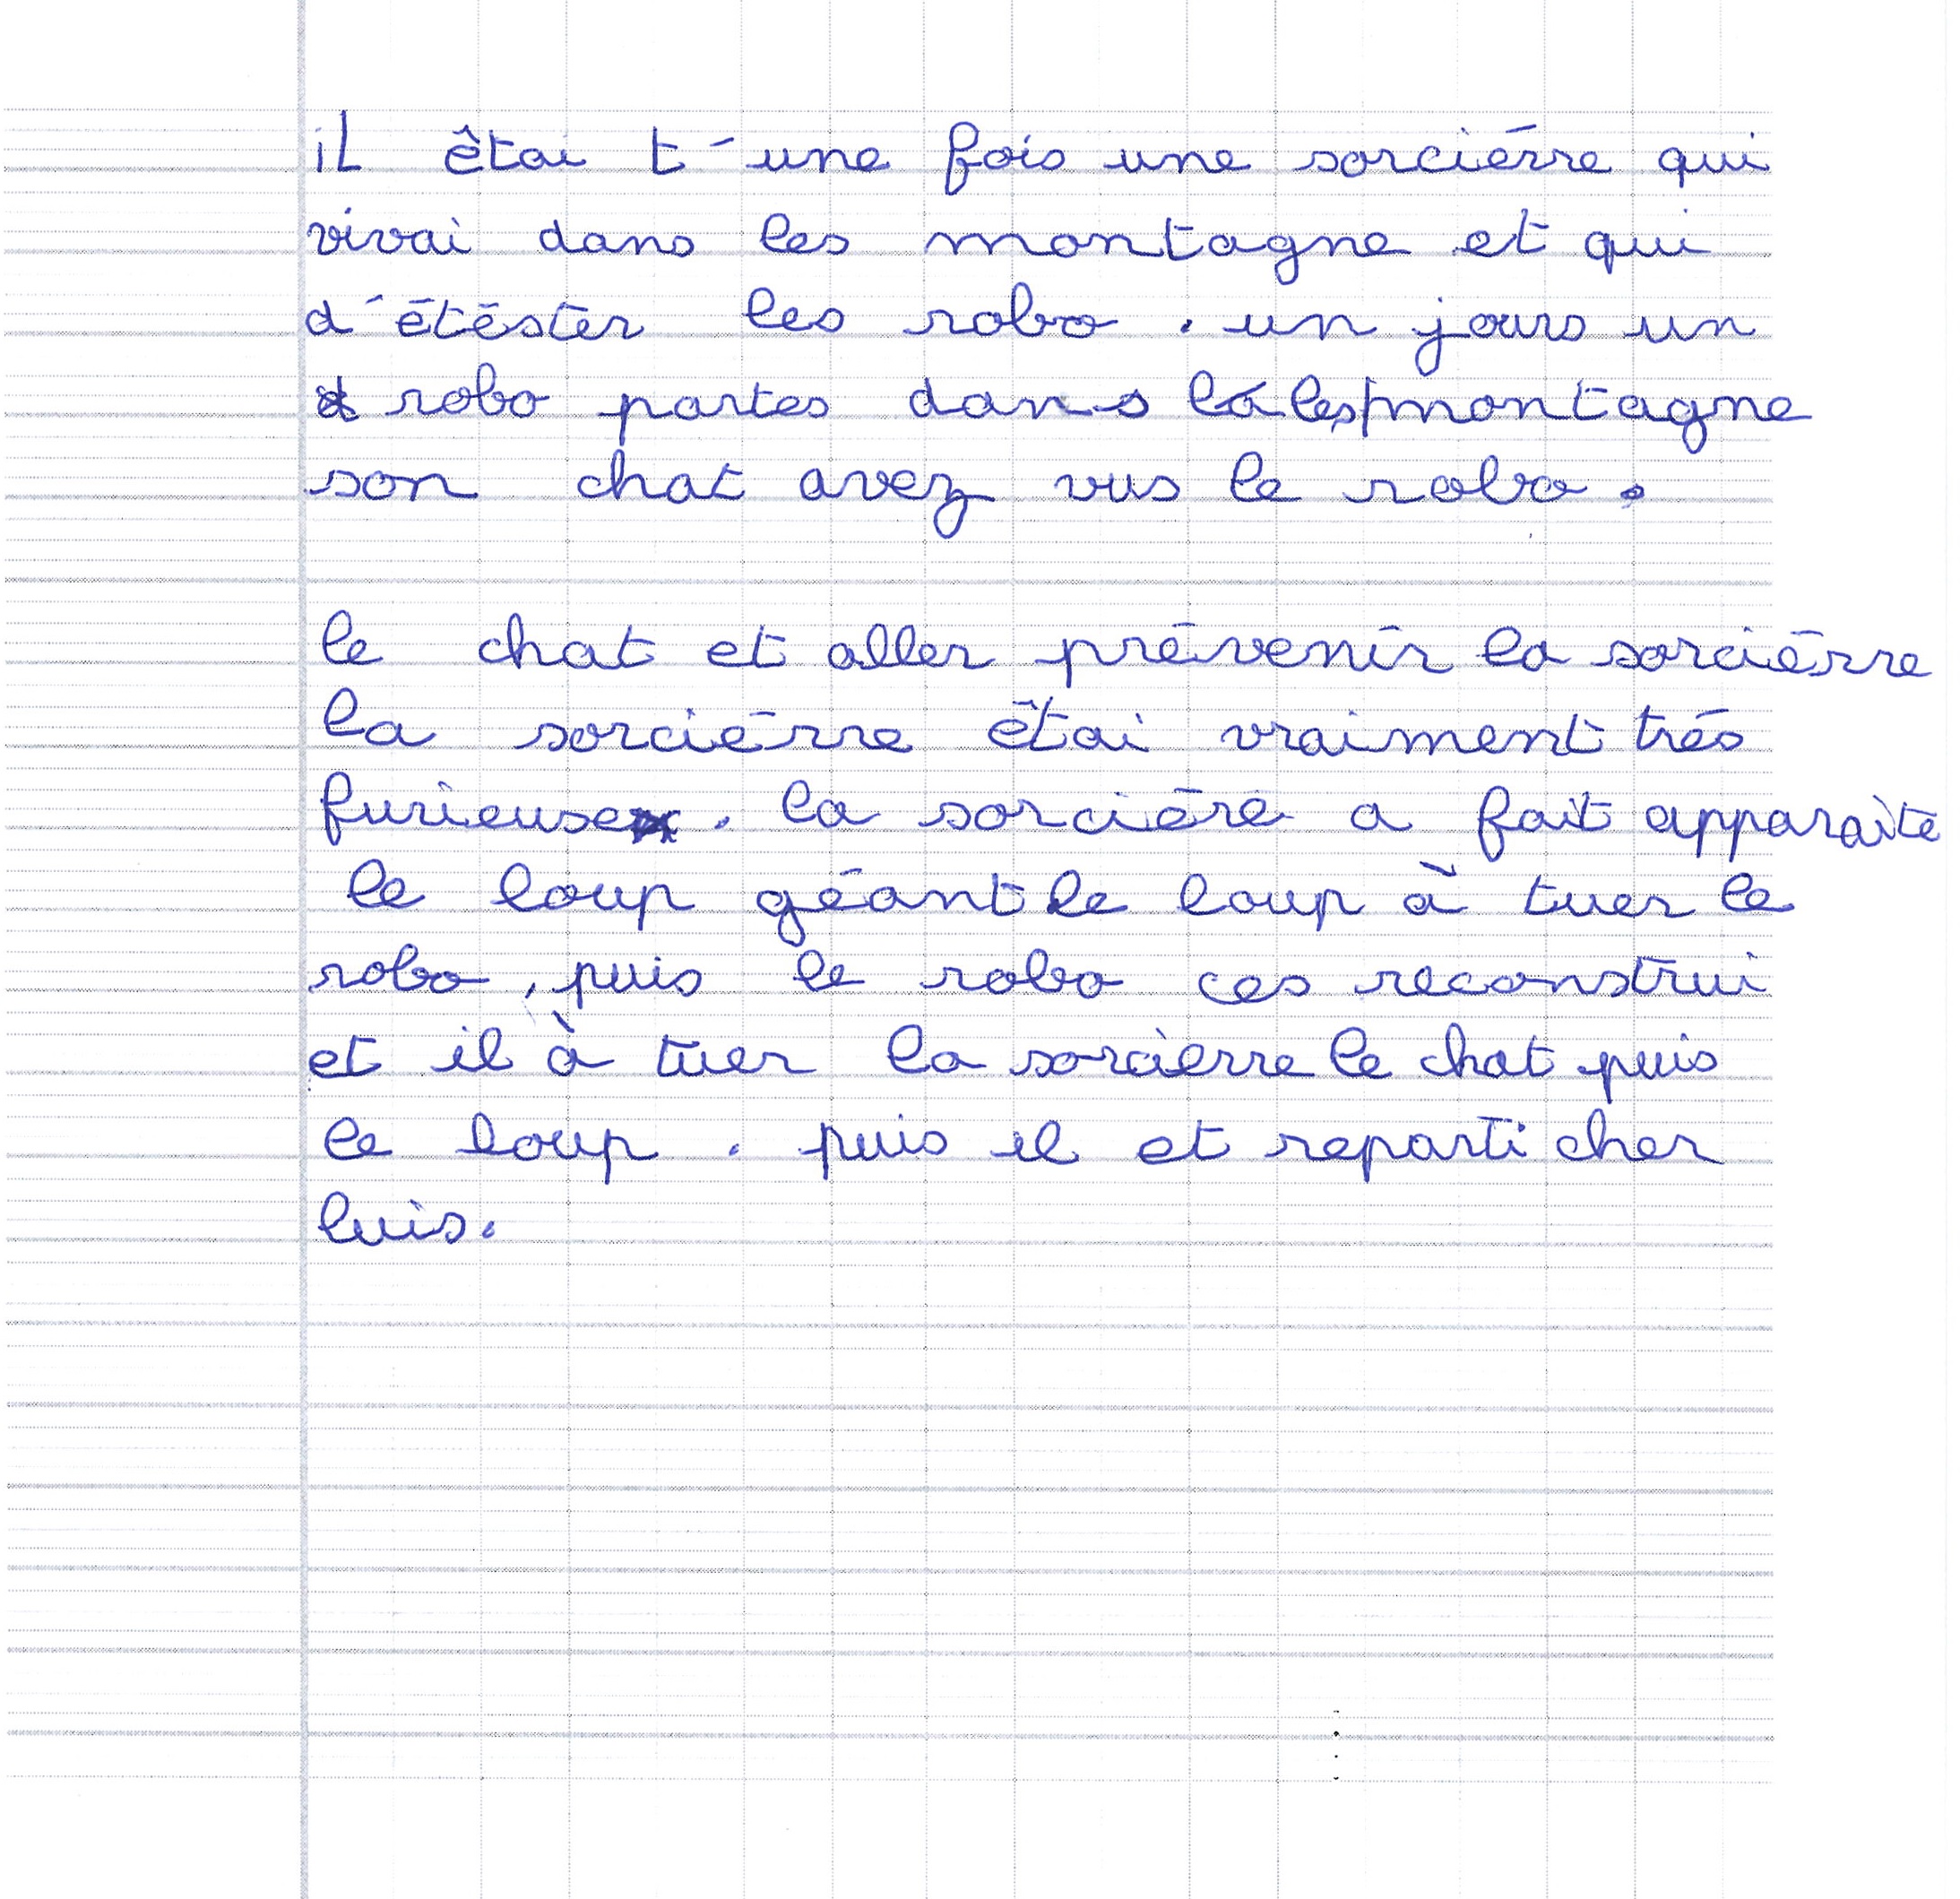 il êtai t'une fois une sorciérre qui
vivai dans les montagne et qui
d'étéster les robo. un jours un
robo partes dans les montagne
son chat avez vus le robo.
le chat et aller prévenir la sorciérre
la sorciérre êtai vraiment trés
furieuse. la sorciére a fait apparaîte
le loup géant le loup à tuer le
robo, puis le robo ces reconstrui
et il à tuer la sorcierre le chat puis
le loup. puis il et reparti cher
luis.